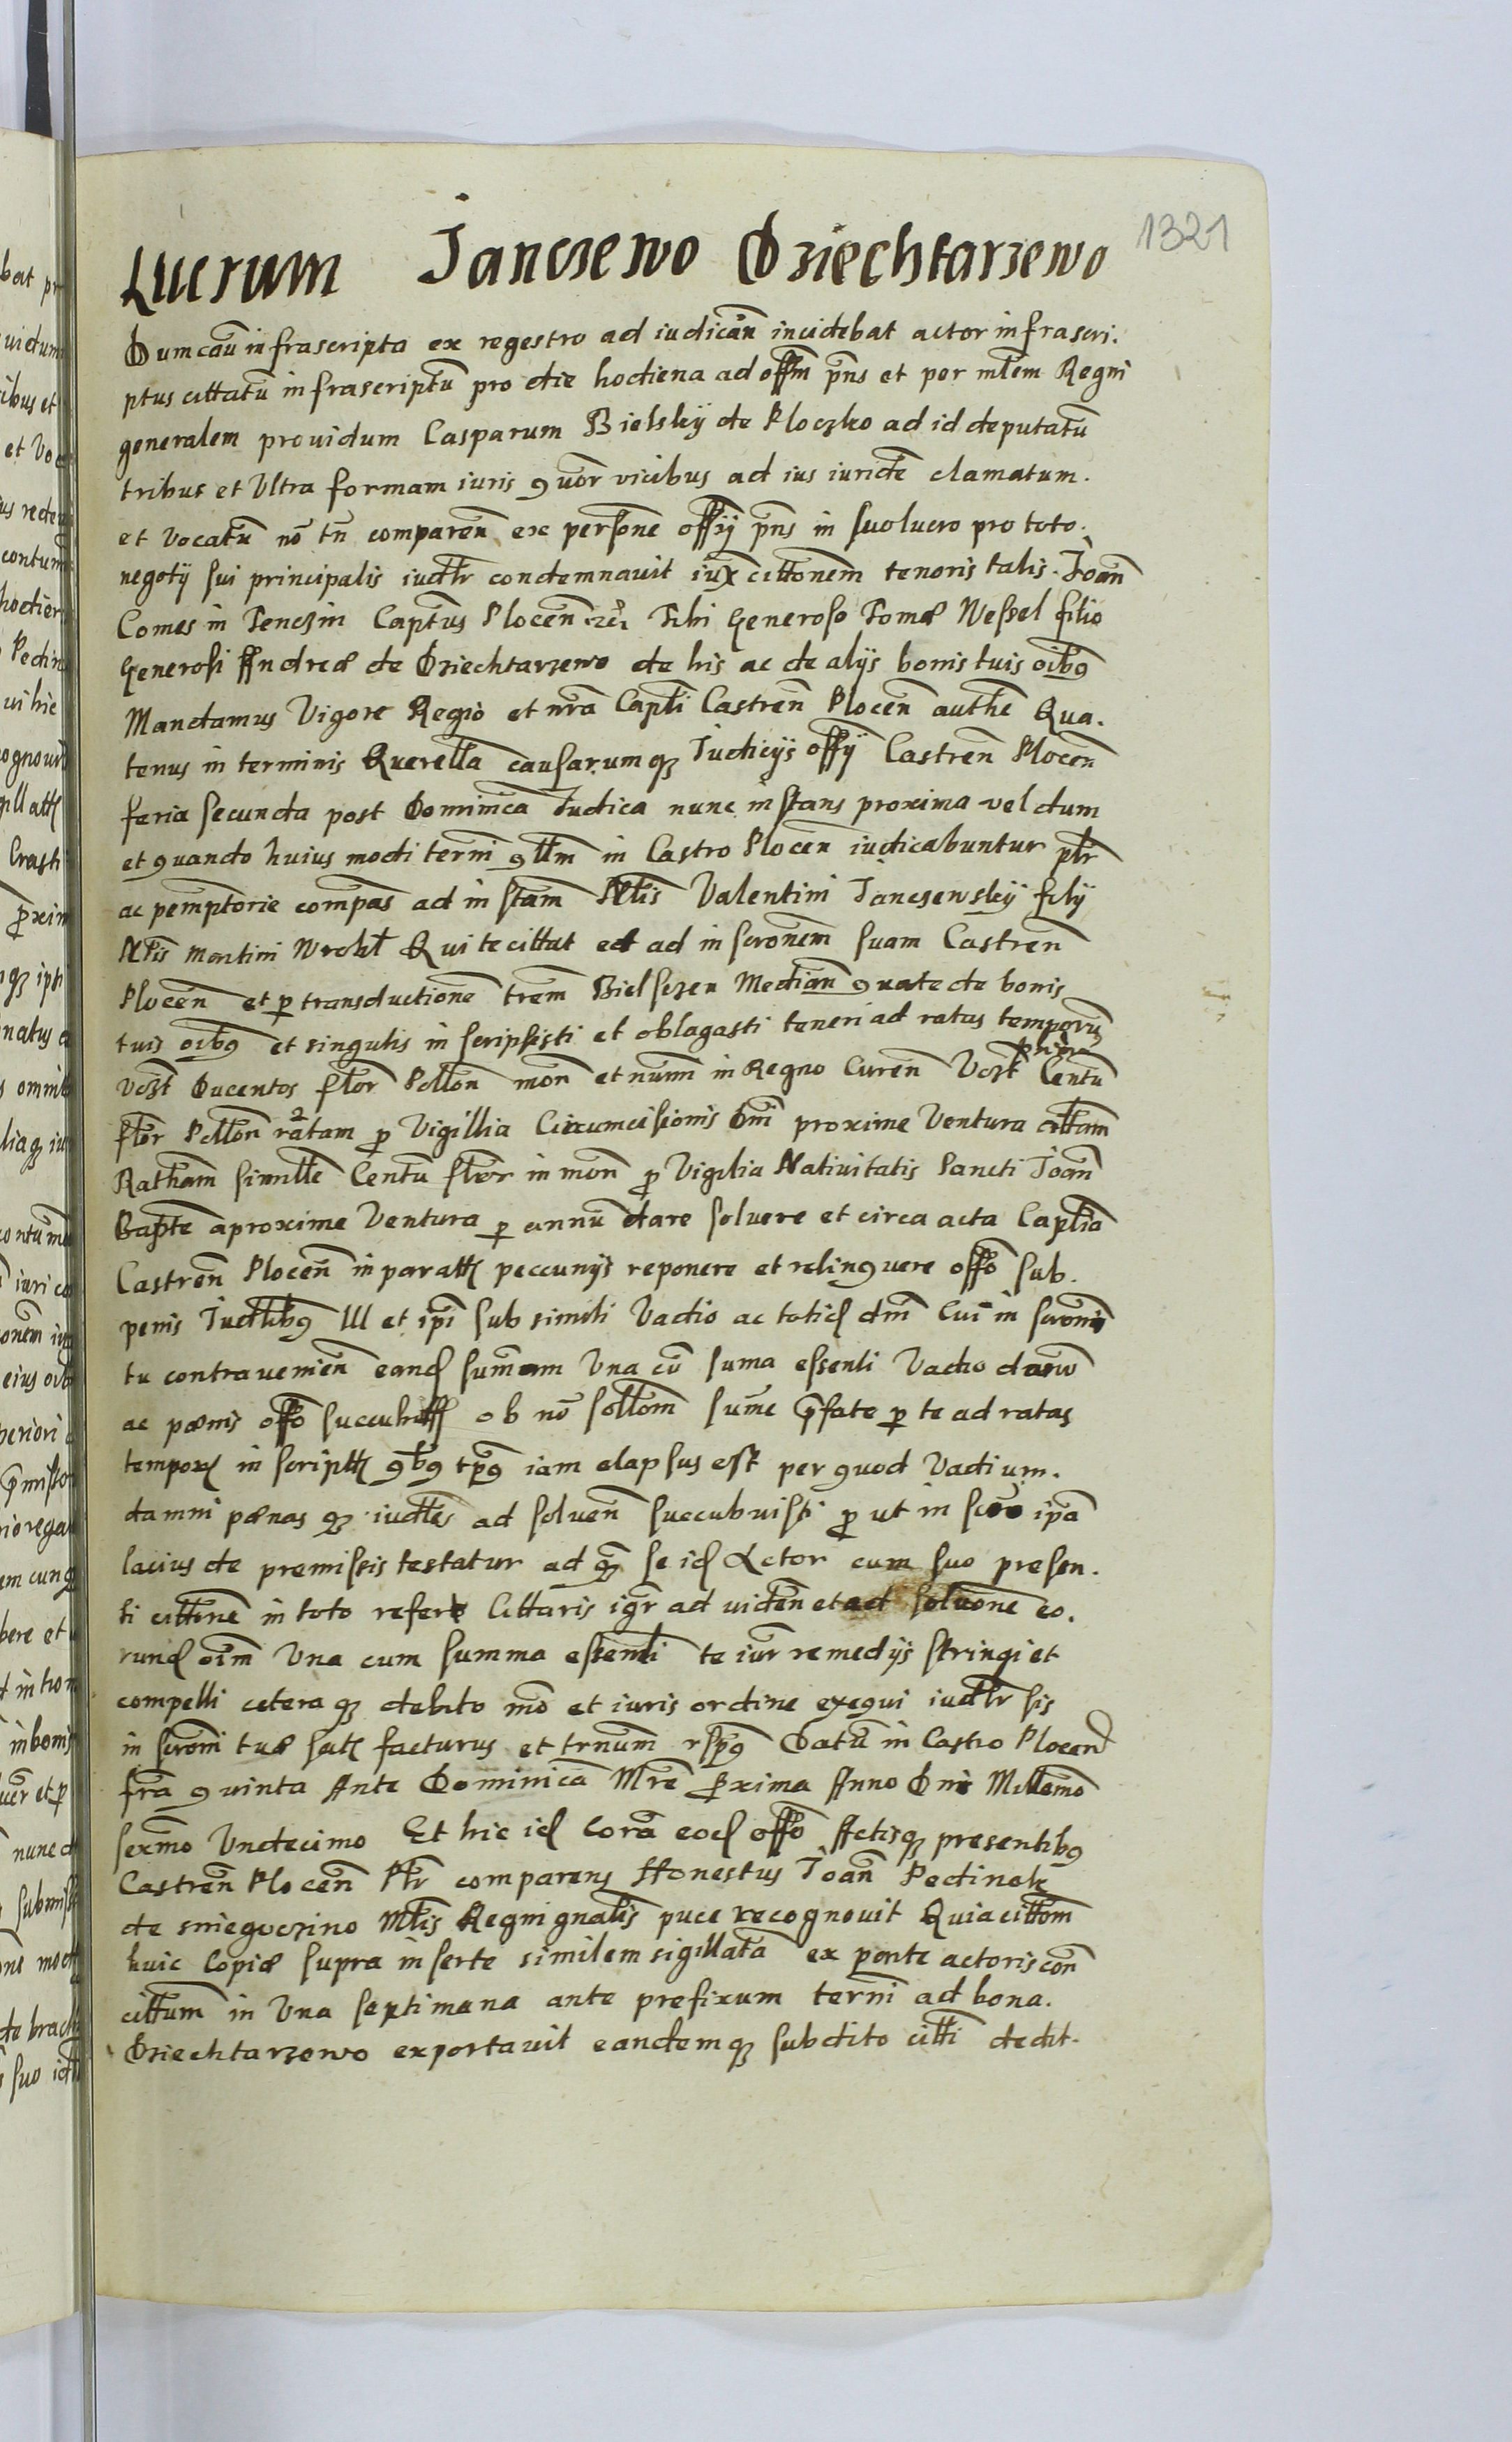 1321
Lucrum Janczewo Dziechtarzewo
Dum cau infrascripta ex regestro ad iudican̄ incidebat actor infrascri.
ptus cittatū infrascriptū pro die hodiena ad offm pn̄s et per mlem Regni
generalem prouidum Casparum Bielskÿ de Ploczko ad id deputatū
tribus et Ultra formam iuris quor vicibus ad ius iuridē clamatum.
et vocatū nō tn̄ comparen̄ ex persone offÿ pn̄s in suo lucro pro toto.
negotÿ sui principalis iudlr condemnauit iux cittonem tenoris talis. Joan̄
Comes in Tenczin Captūs Plocen̄ Tibi Generoso Tomæ Wessel filio
Generosi Andreæ de Dziechtarzewo de his ac de alÿs bonis tuis oibq
Mandamus Vigore Regio et nrā Capli Castren̄ Plocen̄ authē Qua.
tenus in terminis Querella causarumqz Judicÿs offÿ Castren̄ Plocen̄
feria secunda post Dominica Judica nunc instans proxima vel dum
et quando huius modi tern̄i qllm in Castro Plocen̄ iudicabuntur plr
ac pemptorie compas ad instam Nlis Valentini Janczewskÿ filÿ
Nlis Martini Wrobl Qui te cittat ad inscronem suam Castren̄
Plocen̄ et p transductione trem Bielsczen Median̄ qua te de bonis
tuis oibq et singulis inscripsisti et oblagasti teneri ad ratas temporū
Vozt Ducentos flor Pollon̄ mon̄ et num in Regno Curen̄ Vozt Centū
flor Pollon̄ ratam p Vigillia Circumcisionis Dni proxime Ventura altam
Ratham similte Centū flor in mon̄ p Vigilia Natiuitatis Sancti Joan̄
Bapte aproxime Ventura p annū dare soluere et circa acta Caplia
Castren̄ Plocen̄ in paratt peccunÿs reponere et relinquere offo sub.
penis Judlibq Ill et ipi sub simili Vadio ac totid dm Cui inscroni
tu contrauenien̄ eand summam Una cū suma essenli Vadio
ac pœnis offo ob nō sollom sume pfate p te ad ratas
tempor inscriptt qbq tpq iam elapsus est per quod Vadium.
damni pœnas qz iudles ad soluen̄ succubuisti p ut inscro ipa
lacius de premissis testatur ad qz se id Actor cum suo presen.
ti cittone in toto refert Cittaris igr ad uiden̄ et ad soluone eo.
rund oim Una cum summa essenli te iur remedÿs stringi et
compelli cetera qz debito mō et iuris ordine exequi iudlr sis
inscroni tuæ satt facturus et trnum rspq Datū in Castro Plocen̄
fra quinta Ante Dominica Mre Proxima Anno Dni Millemo
sexmo Undecimo Et hic id Cora eod offo Actisqz presentibq
Castren̄ Plocen̄ Plr comparens Honestus Joan̄ Pedinok
de sniegoczino Mlis Regni gnalis puce recognouit Quia cittom
huic Copiæ supra inserte similem sigillatā ex parte actoris con̄
cittum in Una septimana ante prefixum tern̄i ad bona.
Dziechtarzowo exportauit eandemqz subdito citti dedit.